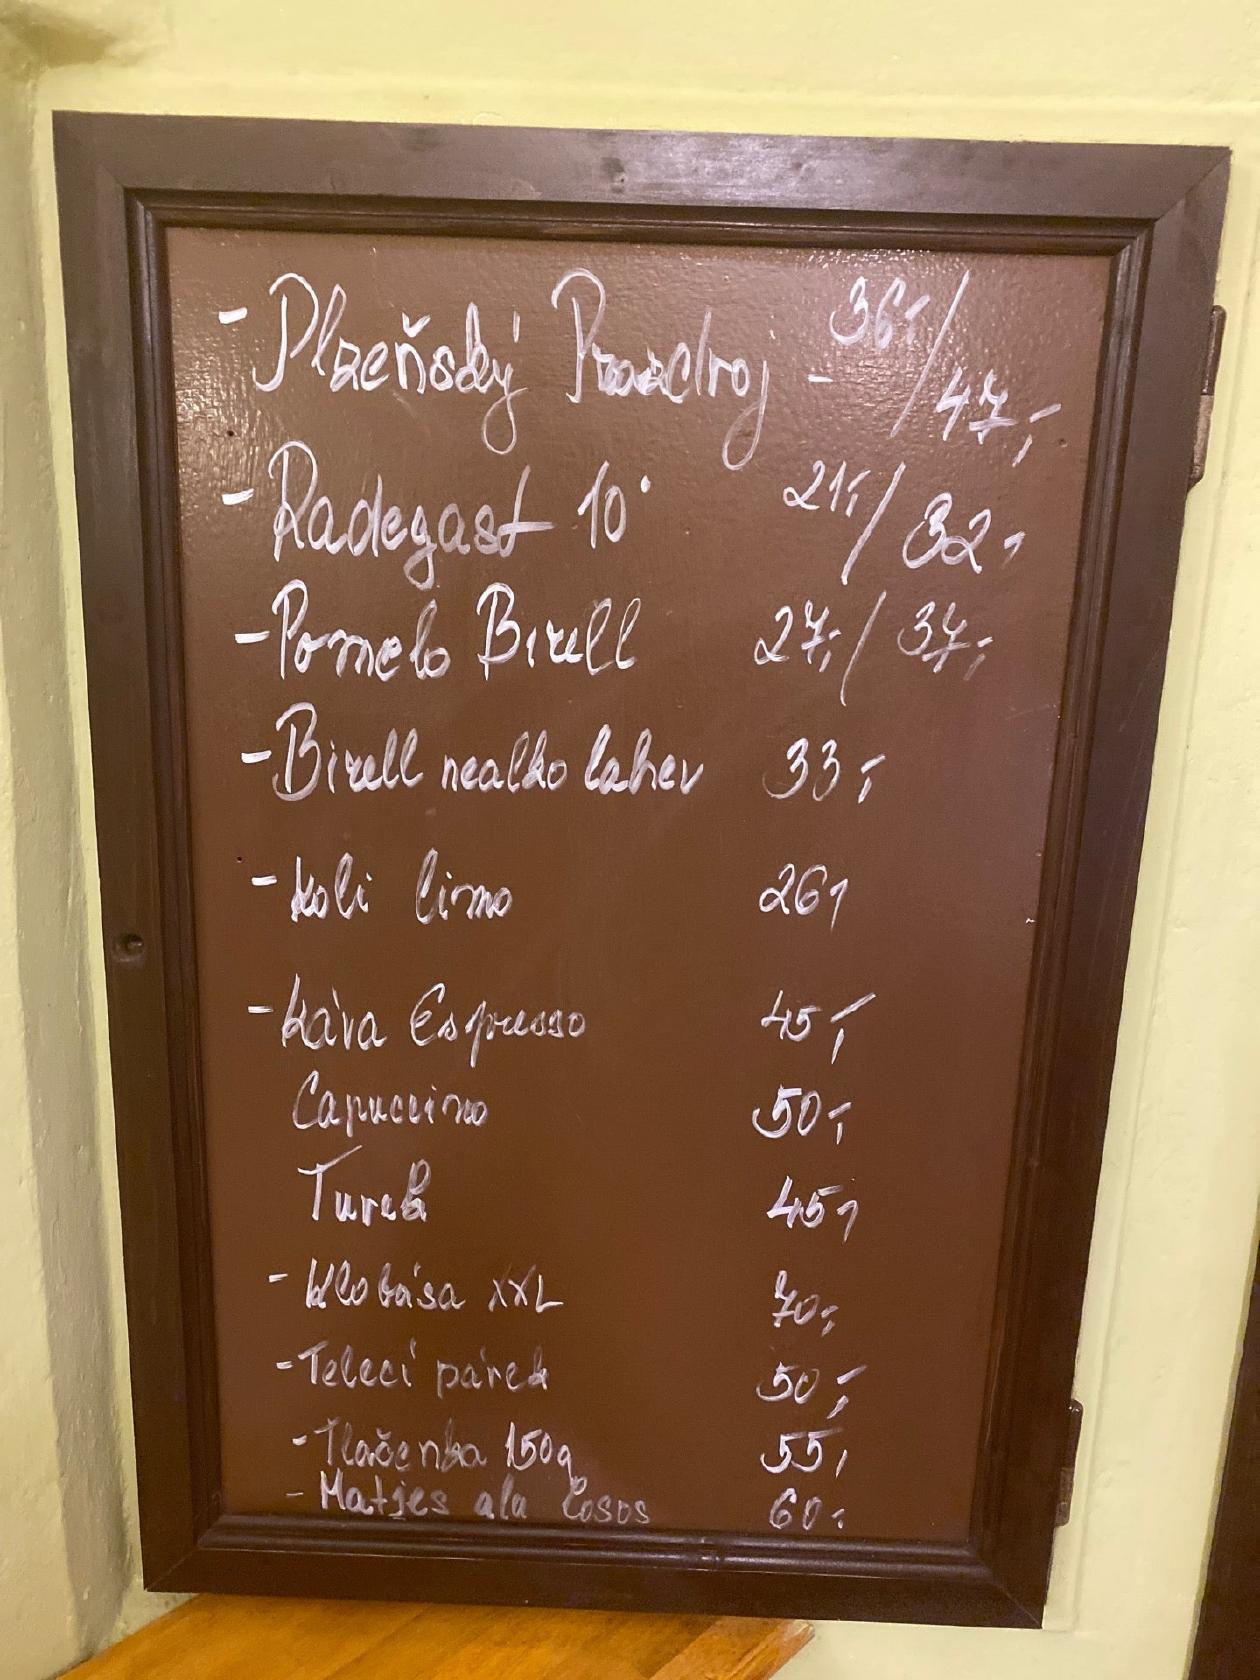 - Plzeňský Prazdroj - 36,-/47,-
- Radegast 10° 21,-/32,-
- Pomelo Birell 27,-/37,-
- Birell nealko lahev 33,-
- Koli limo 26,-
- Káva Espresso 45,-
Capuccino 50,-
Turek 45,-
- Klobása XXL 70,-
- Telecí párek 50,-
- Tlačenka 150g 55,-
- Matjes ala Losos 60,-